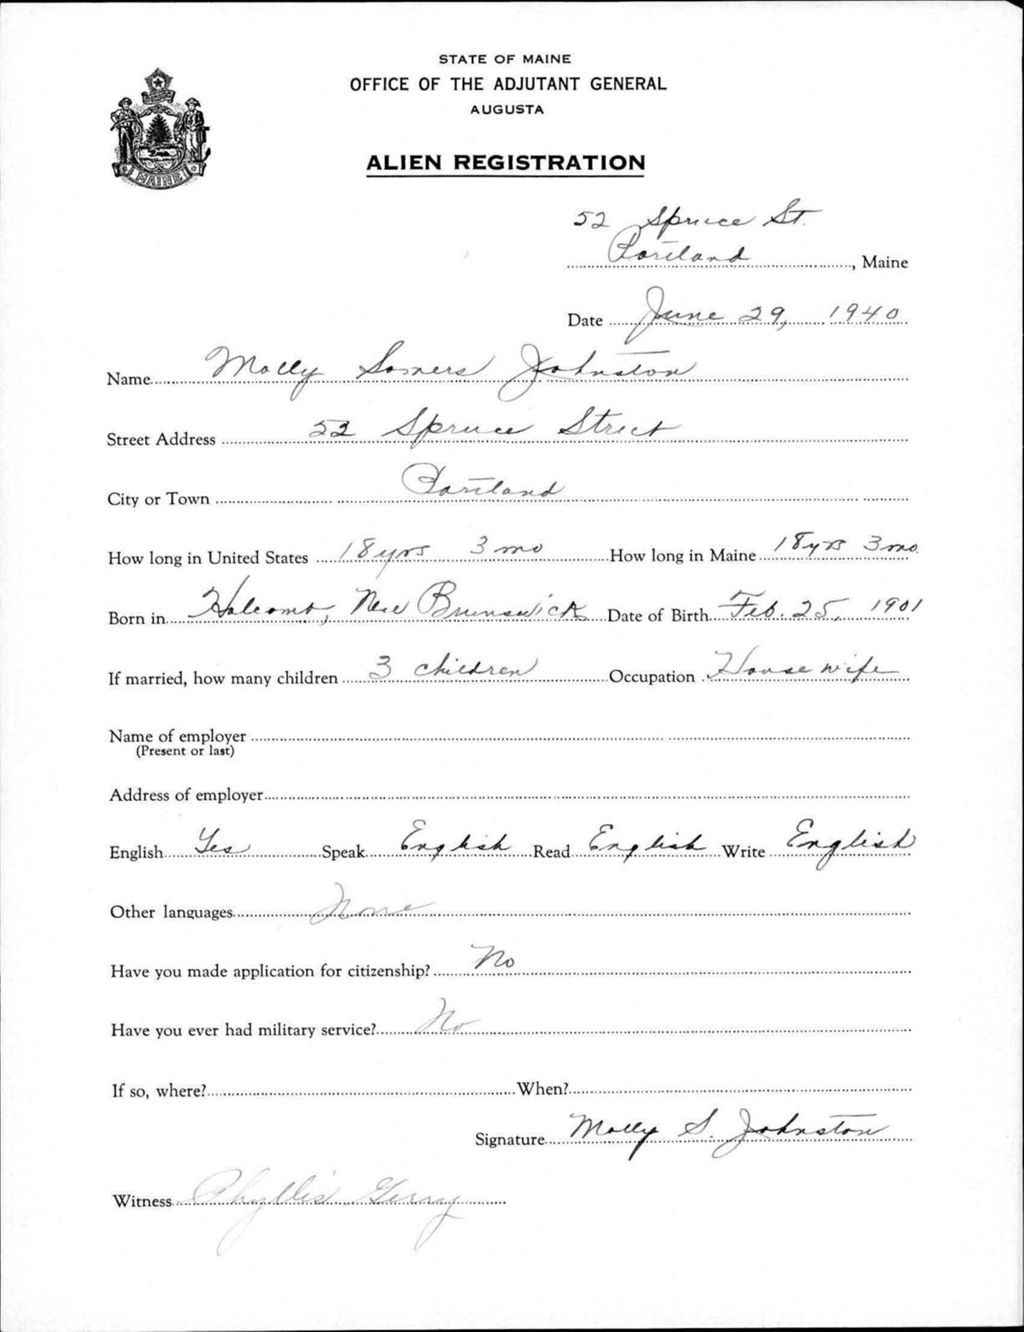 STATE OF MAINE
OFFICE OF THE ADJUTANT GENERAL
AUGUSTA
ALIEN REGISTRATION
MAINE
52 Spruce St.
Portland, Maine
Date June 29, 1940
Name Molly Somers Johnston
Street Address 52 Spruce Street
City or Town Portland
How long in United States 18 yrs 3 mo How long in Maine 18 yrs 3 mo.
Born in Holcomb, New Brunswick Date of Birth Feb. 25, 1901
If married, how many children 3 children Occupation Housewife
Name of employer
(Present or last)
Address of employer
English Yes Speak English Read English Write English
Other languages None
Have you made application for citizenship? No
Have you ever had military service? No
If so, where? When?
Signature Molly S. Johnston
Witness Phyllis Gerry